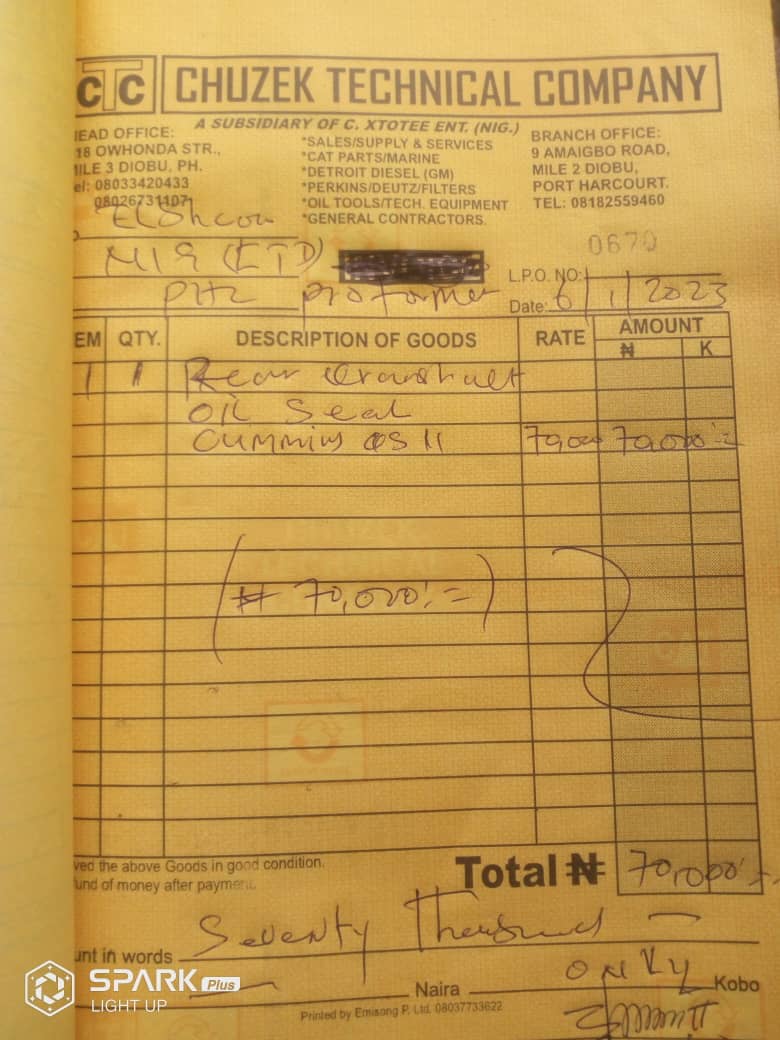 CTC CHUZEK TECHNICAL COMPANY
A SUBSIDIARY OF C. XTOTEE ENT. (NIG.)
HEAD OFFICE:
18 OWHONDA STR.,
MILE 3 DIOBU, PH.
el: 08033420433
08026731107
*SALES/SUPPLY & SERVICES
*CAT PARTS/MARINE
*DETROIT DIESEL (GM)
*PERKINS/DEUTZ/FILTERS
*OIL TOOLS/TECH. EQUIPMENT
*GENERAL CONTRACTORS.
BRANCH OFFICE:
9 AMAIGBO ROAD,
MILE 2 DIOBU,
PORT HARCOURT.
TEL: 08182559460
Elshcon
NIG (LTD)
0670
PHC
L.P.O. NO:
Date: 6/1/2023
EM QTY. DESCRIPTION OF GOODS RATE AMOUNT
₦ K
1 1 Rear Crankshaft
OIL Seal
Cummins QS 11 70,000 70,000:=
(₦ 70,000:=)
ved the above Goods in good condition.
fund of money after payment.
Total ₦ 70,000:=
unt in words Seventy Thousand
Naira ONLY Kobo
Printed by Emisong P. Ltd. 08037733622
SPARK Plus
LIGHT UP